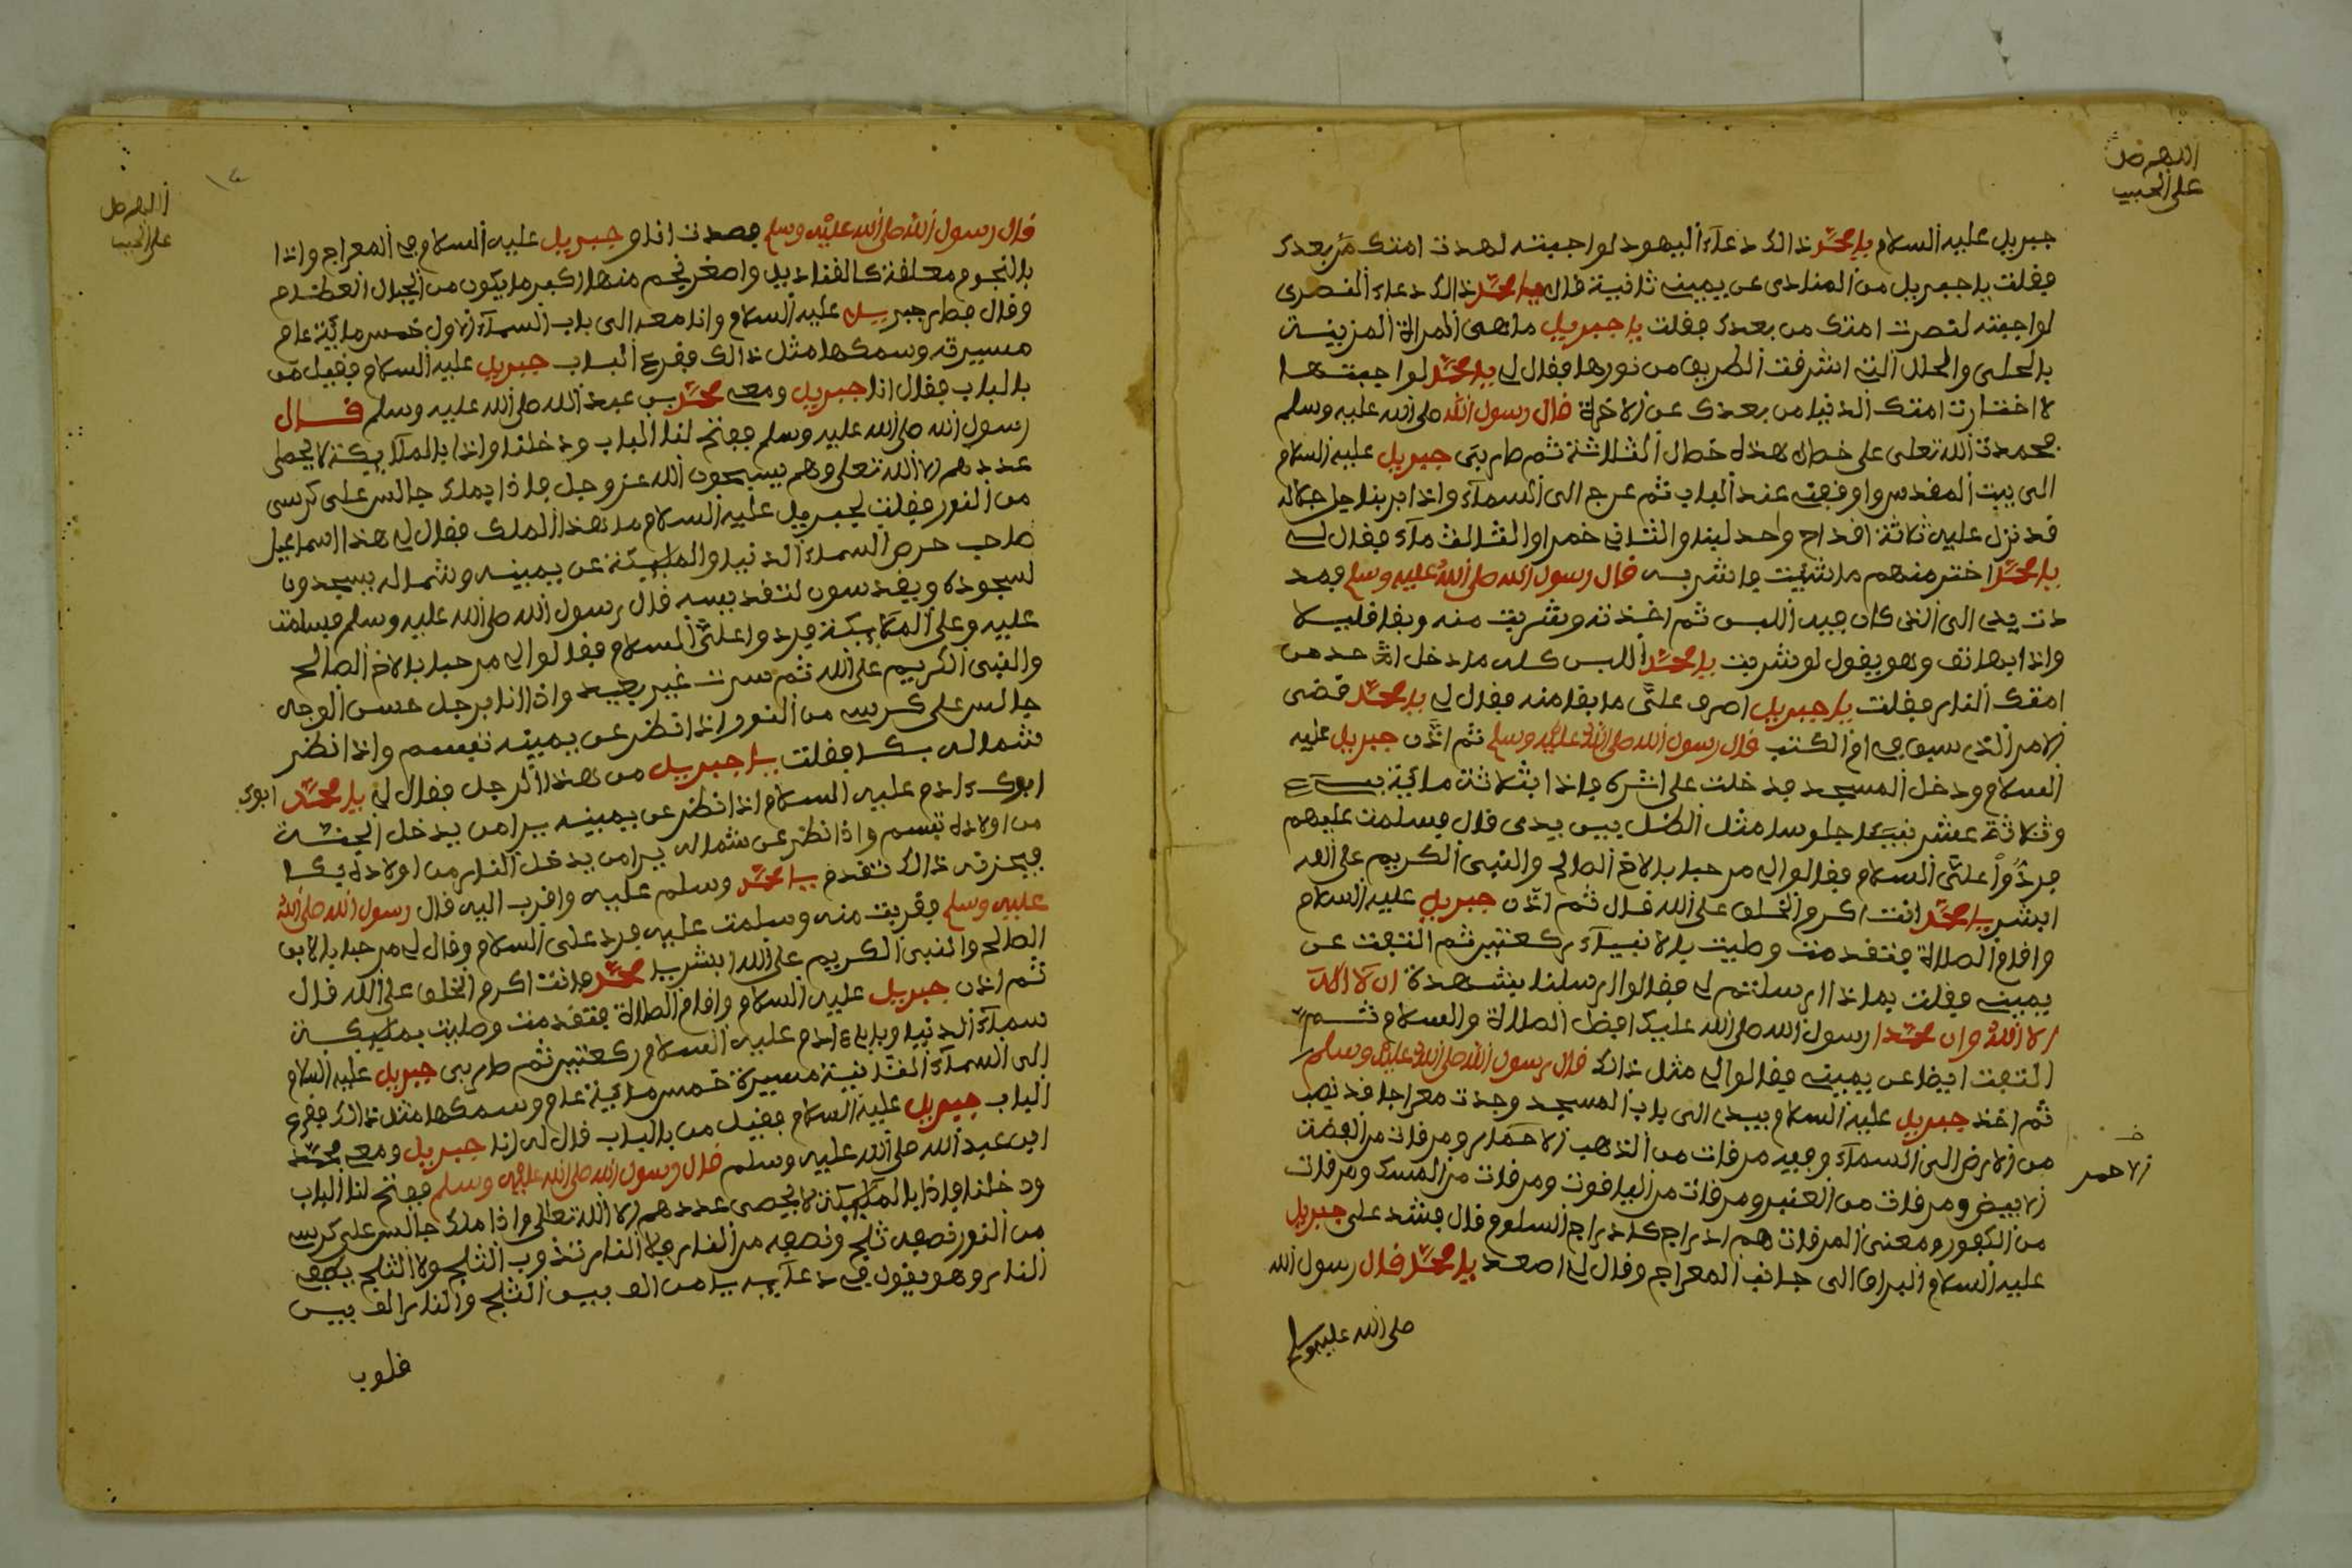 اللهم صل
على الحبيب
جبريل عليه السلام يا محمد ذالك دعاء اليهود لو اجبته لهدت امتك من بعدك
فقلت يا جبريل من المنادى عن يمينه ثانية قال يا محمد ذالك دعاء النصرى
لو اجبته لنصرت امتك من بعدك فقلت يا جبريل ما هى المراة المزينة
بالحلى والحلل التى اشرفت الطريق من نورها فقال لى يا محمد لو اجبتها
لاختارت امتك الدنيا من بعدك عن الاخرة قال رسول الله صلى الله عليه وسلم
فحمدت الله تعلى على خطال هذه خطال الثلاثة ثم طار بى جبريل عليه السلام
الى بيت المقدس واوقفه عند الباب ثم عرج الى السماء واذا برجل
قد نزل عليه ثلاثة اقداح واحد لبنا والثانى خمرا والثالث ماء فقال لى
يا محمد اختر منهم ما شئت واشربه قال رسول الله صلى الله عليه وسلم فمد
دت يدى الى الذى كان فيه اللبن ثم اخذته وشربت منه وبقا قليلا
واذا بهاتف وهو يقول لو شربت يا محمد اللبن كله ما دخل احد من
امتك النار فقلت يا جبريل اصرف على ما بقا منه فقال لى يا محمد قضى
الامر الذى سبق فى ام الكتب قال رسول الله صلى الله عليه وسلم ثم اذن جبريل عليه
السلام ودخل المسجد فدخلت على اثره واذا بثلاثة مائة نبى
وثلاثة عشر نبيا جلوسا مثل الظل بين يدى قال فسلمت عليهم
فردوا على السلام فقالوا لى مرحبا بالاخ الصالح والنبى الكريم على الله
ابشر يا محمد انت اكرم الخلق على الله قال ثم اذن جبريل عليه السلام
واقام الصلاة فتقدمت وصليت بالانبياء ركعتين ثم التفت عن
يمينى فقلت بما ذا ارسلتم لى فقالوا ارسلنا بشهدة ان لا اله
الا الله وان محمدا رسول الله صلى الله عليك افضل الصلاة والسلام ثم
التفت ايضا عن يمينه فقالوا لى مثل ذالك قال رسول الله صلى الله عليه وسلم
ثم اخذ جبريل عليه السلام بيدى الى باب المسجد وجدت معراجا قد نصب
من الارض الى السماء وفيه مرقات من الذهب الاحمر ومرقات من الفضت
الابيض ومرقات من العنبر ومرقات من الياقوت ومرقات من المسك ومرقات
من الكفور ومعنى المرقات هم ادراج كادراج السلوم قال فشد على جبريل
عليه السلام البراق الى جانب المعراج وقال لى اصعد يا محمد قال رسول الله
صلى الله عليه وسلم
الاحمر
اللهم صل
على الحبيب
قال رسول الله صلى الله عليه وسلم فصعدت انا وجبريل عليه السلام فى المعراج واذا
بالنجوم معلقة كالقناديل واصغر نجم منها اكبر ما يكون من الجبال العظام
وقال فطار جبريل عليه السلام وانا معه الى باب السماء الاول خمس مائة عام
مسيرته وسمكها مثل ذالك فقرع الباب جبريل عليه السلام فقيل من
بالباب فقال انا جبريل ومعى محمد بن عبد الله صلى الله عليه وسلم قال
رسول الله صلى الله عليه وسلم ففتح لنا الباب ودخلنا واذا بالملائكة لا يحصى
عددهم الا الله تعلى وهم يسبحون الله عز وجل واذا بملك جالس على كرسى
من النور فقلت لجبريل عليه السلام ما هذا الملك فقال لى هذا اسماعيل
صاحب حرص السماء الدنيا والملئكة عن يمينه وشماله يسجدون
لسجوده ويقدسون لتقديسه قال رسول الله صلى الله عليه وسلم فسلمت
عليه وعلى الملائكة فردوا على السلام فقالوا لى مرحبا بالاخ الصالح
والنبى الكريم على الله ثم سرت غير بعيد واذا انا برجل حسن الوجه
جالس على كرسى من النور اذا نظر عن يمينه تبسم واذا نظر
شماله بكا فقلت يا جبريل من هذا الرجل فقال لى يا محمد ابوك
ابوك ءادم عليه السلام اذا نظر عن يمينه يرا من يدخل الجنة
من اولاده تبسم واذا نظر عن شماله يرا من يدخل النار من اولاده بكا
فيحزنه ذالك تقدم يا محمد وسلم عليه واقرب اليه قال رسول الله صلى الله
عليه وسلم فقربت منه وسلمت عليه فرد على السلام وقال لى مرحبا بالابن
الصالح والنبى الكريم على الله ابشر يا محمد فانت اكرم الخلق على الله قال
ثم اذن جبريل عليه السلام واقام الصلاة فتقدمت وصليت بملئكة
سماء الدنيا وبابى ءادم عليه السلام ركعتين ثم طار بى جبريل عليه السلام
الى السماء الثانية مسيرة خمس مائية عام وسمكها مثل ذالك فقرع
الباب جبريل عليه السلام فقيل من بالباب قال له انا جبريل ومعى محمد
ابن عبد الله صلى الله عليه وسلم قال رسول الله صلى الله عليه وسلم ففتح لنا الباب
ودخلنا واذا بالملئكة لا يحصى عددهم الا الله تعالى واذا ملك جالس على كرسى
من النور نصفه ثلج ونصفه من النار فلا النار تذوب الثلج ولا الثلج يطفى
النار وهو يقول فى دعائه يا من الف بين الثلج والنار الف بين
قلوب